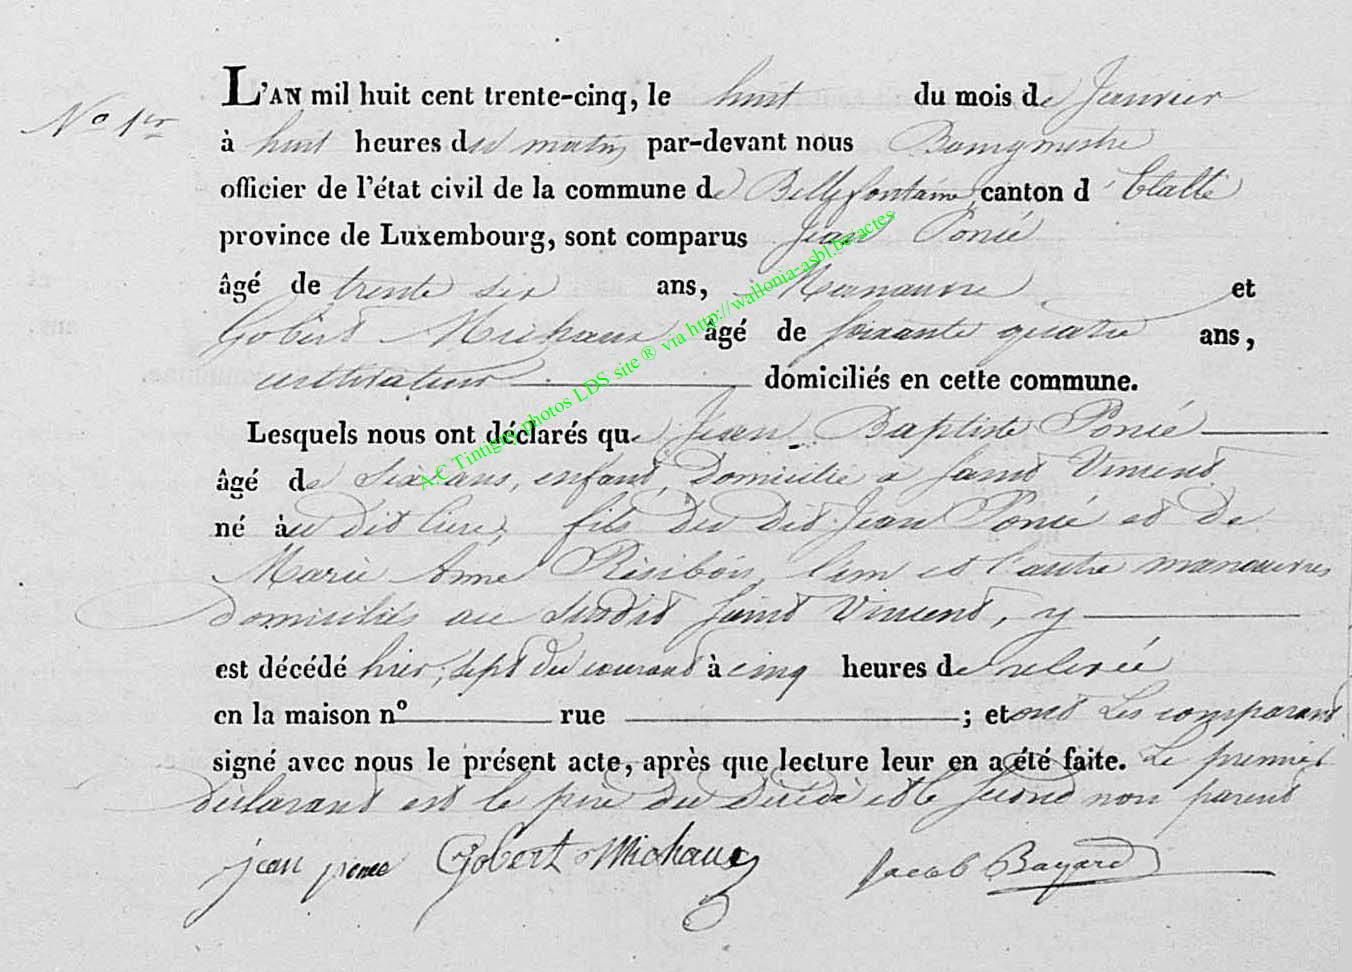 L'AN mil huit cent trente-cinq, le huit du mois de Janvier
No 1er
à huit heures du matin par-devant nous Bourgmestre
officier de l'état civil de la commune de Bellefontaine, canton d'Etalle
province de Luxembourg, sont comparus Jean Ponié
âgé de trente six ans, Manœuvre et
Gobert Michaux âgé de soixante quatre ans,
cultivateur domiciliés en cette commune.
Lesquels nous ont déclarés que Jean-Baptiste Ponié
âgé de six ans, enfant, domicilié à Saint Vincent
né au dit lieu, fils du dit Jean Ponié et de
Marie Anne Résibois, l'un et l'autre manœuvres
domiciliés au susdit Saint Vincent, y
est décédé hier, sept du courant à cinq heures de relevée
en la maison n° rue ; et ont les comparant
signé avec nous le présent acte, après que lecture leur en a été faite. Le premier
déclarant est le père du décédé et le second non parent
jean ponce Gobert Michaux Jacob Bayard
A.C Tintigny photos LDS site ® via http://wallonia-asbl.be/actes